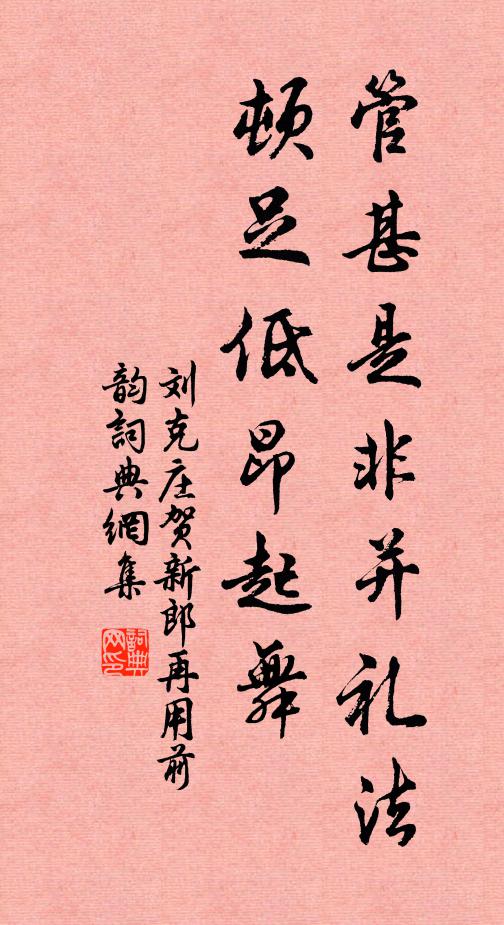 管甚是非并礼法
顿足低昂起舞
刘克庄贺新郎再用前
韵词典網集
詞典
网印